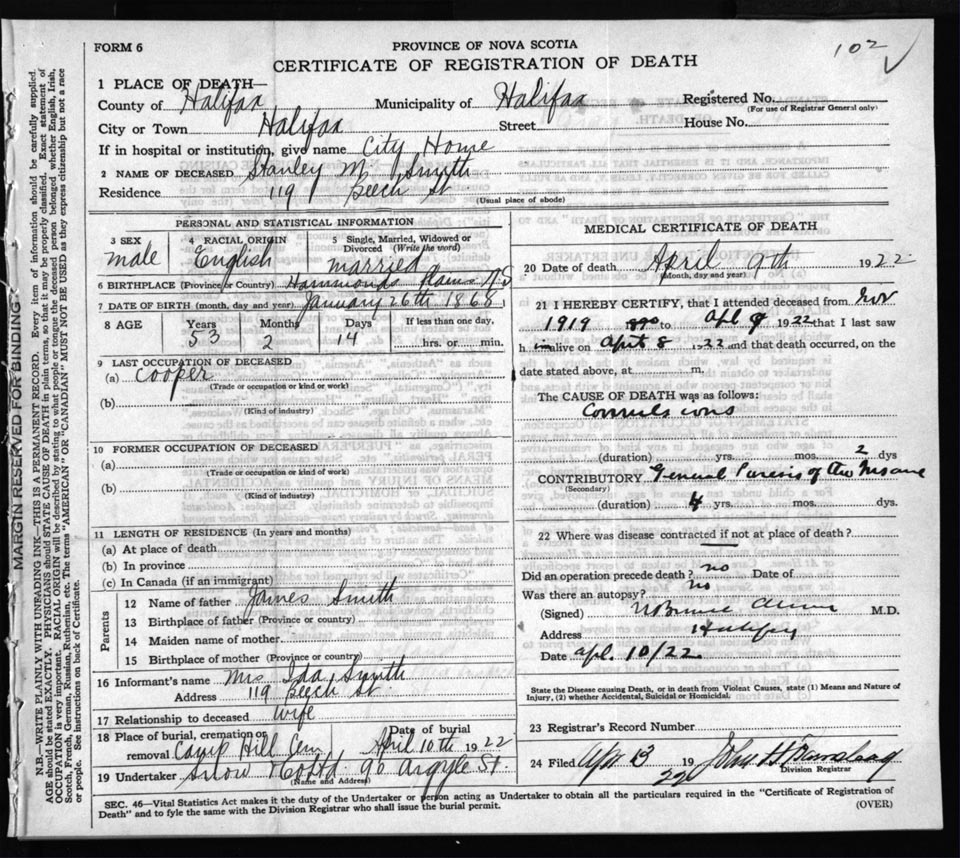 102 ✓
FORM 6
PROVINCE OF NOVA SCOTIA
CERTIFICATE OF REGISTRATION OF DEATH
1 PLACE OF DEATH—
County of Halifax Municipality of Halifax Registered No.
(For use of Registrar General only)
City or Town Halifax Street House No.
If in hospital or institution, give name City Home
2 NAME OF DECEASED Stanley M. Smyth
Residence 119 Beech St
(Usual place of abode)
PERSONAL AND STATISTICAL INFORMATION
3 SEX 4 RACIAL ORIGIN 5 Single, Married, Widowed or Divorced (Write the word)
male English married
6 BIRTHPLACE (Province or Country) Hammonds Plains N S
7 DATE OF BIRTH (month, day and year) January 26th 1868
8 AGE Years Months Days If less than one day,
53 2 14 hrs. or min.
9 LAST OCCUPATION OF DECEASED
(a) Cooper
(Trade or occupation or kind or work)
(b)
(Kind of industry)
10 FORMER OCCUPATION OF DECEASED
(a)
(Trade or occupation or kind of work)
(b)
(Kind of industry)
11 LENGTH OF RESIDENCE (In years and months)
(a) At place of death
(b) In province
(c) In Canada (if an immigrant)
Parents
12 Name of father James Smith
13 Birthplace of father (Province or country)
14 Maiden name of mother
15 Birthplace of mother (Province or country)
16 Informant's name Mrs Ida Smyth
Address 119 Beech St.
17 Relationship to deceased Wife
18 Place of burial, cremation or removal Camp Hill Cem Date of burial April 10th 1922
19 Undertaker Snow & Co Ltd 90 Argyle St.
(Name and Address)
MEDICAL CERTIFICATE OF DEATH
20 Date of death April 9th 1922
(Month, day and year)
21 I HEREBY CERTIFY, that I attended deceased from Nov
1919 to Apl 9 1922 that I last saw
him alive on April 8 1922 and that death occurred, on the
date stated above, at m,
The CAUSE OF DEATH was as follows:
Convulsions
(duration) yrs. mos. 2 dys
CONTRIBUTORY General Paresis of the Insane
(Secondary)
(duration) 4 yrs. mos. dys.
22 Where was disease contracted if not at place of death?
Did an operation precede death? no Date of
Was there an autopsy? no
(Signed) M.D.
Address Halifax
Date Apl. 10/22
State the Disease causing Death, or in death from Violent Causes, state (1) Means and Nature of Injury, (2) whether Accidental, Suicidal or Homicidal.
23 Registrar's Record Number
24 Filed Apr 13 1922 John
Division Registrar
SEC. 46—Vital Statistics Act makes it the duty of the Undertaker or person acting as Undertaker to obtain all the particulars required in the "Certificate of Registration of
Death" and to fyle the same with the Division Registrar who shall issue the burial permit.
(OVER)
MARGIN RESERVED FOR BINDING
N.B.—WRITE PLAINLY WITH UNFADING INK—THIS IS A PERMANENT RECORD. Every item of information should be carefully supplied.
AGE should be stated EXACTLY. PHYSICIANS should STATE CAUSE OF DEATH in plain terms, so that it may be properly classified. Exact statement of
OCCUPATION is very important. RACIAL ORIGIN will be described by stating to what people or tongue the deceased person belonged whether English, Irish,
Scotch, French, German, Russian, Ruthenian, etc. The terms "AMERICAN" OR "CANADIAN" MUST NOT BE USED as they express citizenship but not a race
or people. See instructions on back of Certificate.